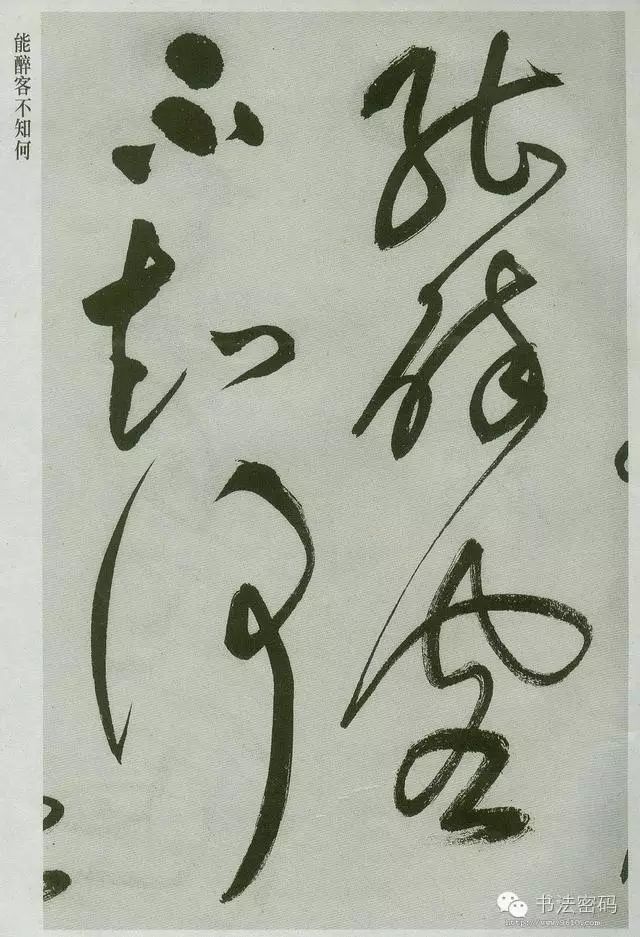 能醉客
不知何
能醉客不知何
书法密码
http://www.9610.com